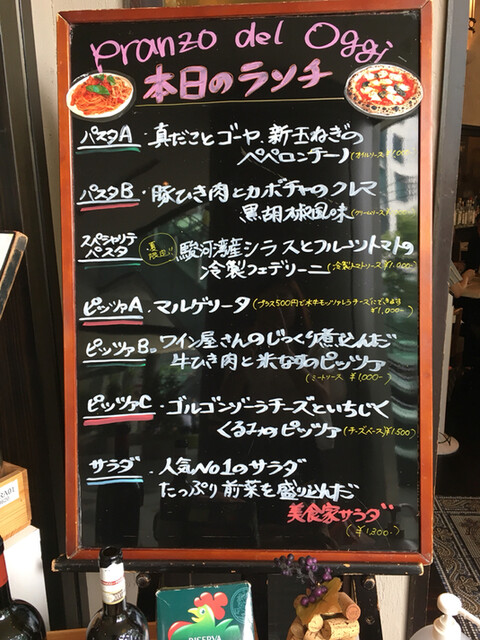 Pranzo del Oggi
本日のランチ
パスタA・真だことゴーヤ、新玉ねぎの
ペペロンチーノ(オイルソース¥1,000-)
パスタB・豚ひき肉とカボチャのクレマ
黒胡椒風味(クリームソース
スペシャリテ
パスタ 夏限定!! 駿河湾産シラスとフルーツトマトの
冷製フェデリーニ(冷製トマトソース¥1,000-)
ピッツァA・マルゲリータ(プラス500円で水牛モッツァレラチーズにできます
¥1,000-)
ピッツァB・ワイン屋さんのじっくり煮込んだ
牛ひき肉と米なすのピッツァ
(ミートソース ¥1,000-)
ピッツァC・ゴルゴンゾーラチーズといちじく
くるみのピッツァ(チーズベース)¥1,500
サラダ・人気No1のサラダ
たっぷり前菜を盛り込んだ
美食家サラダ
(¥1,300-)
RISERVA